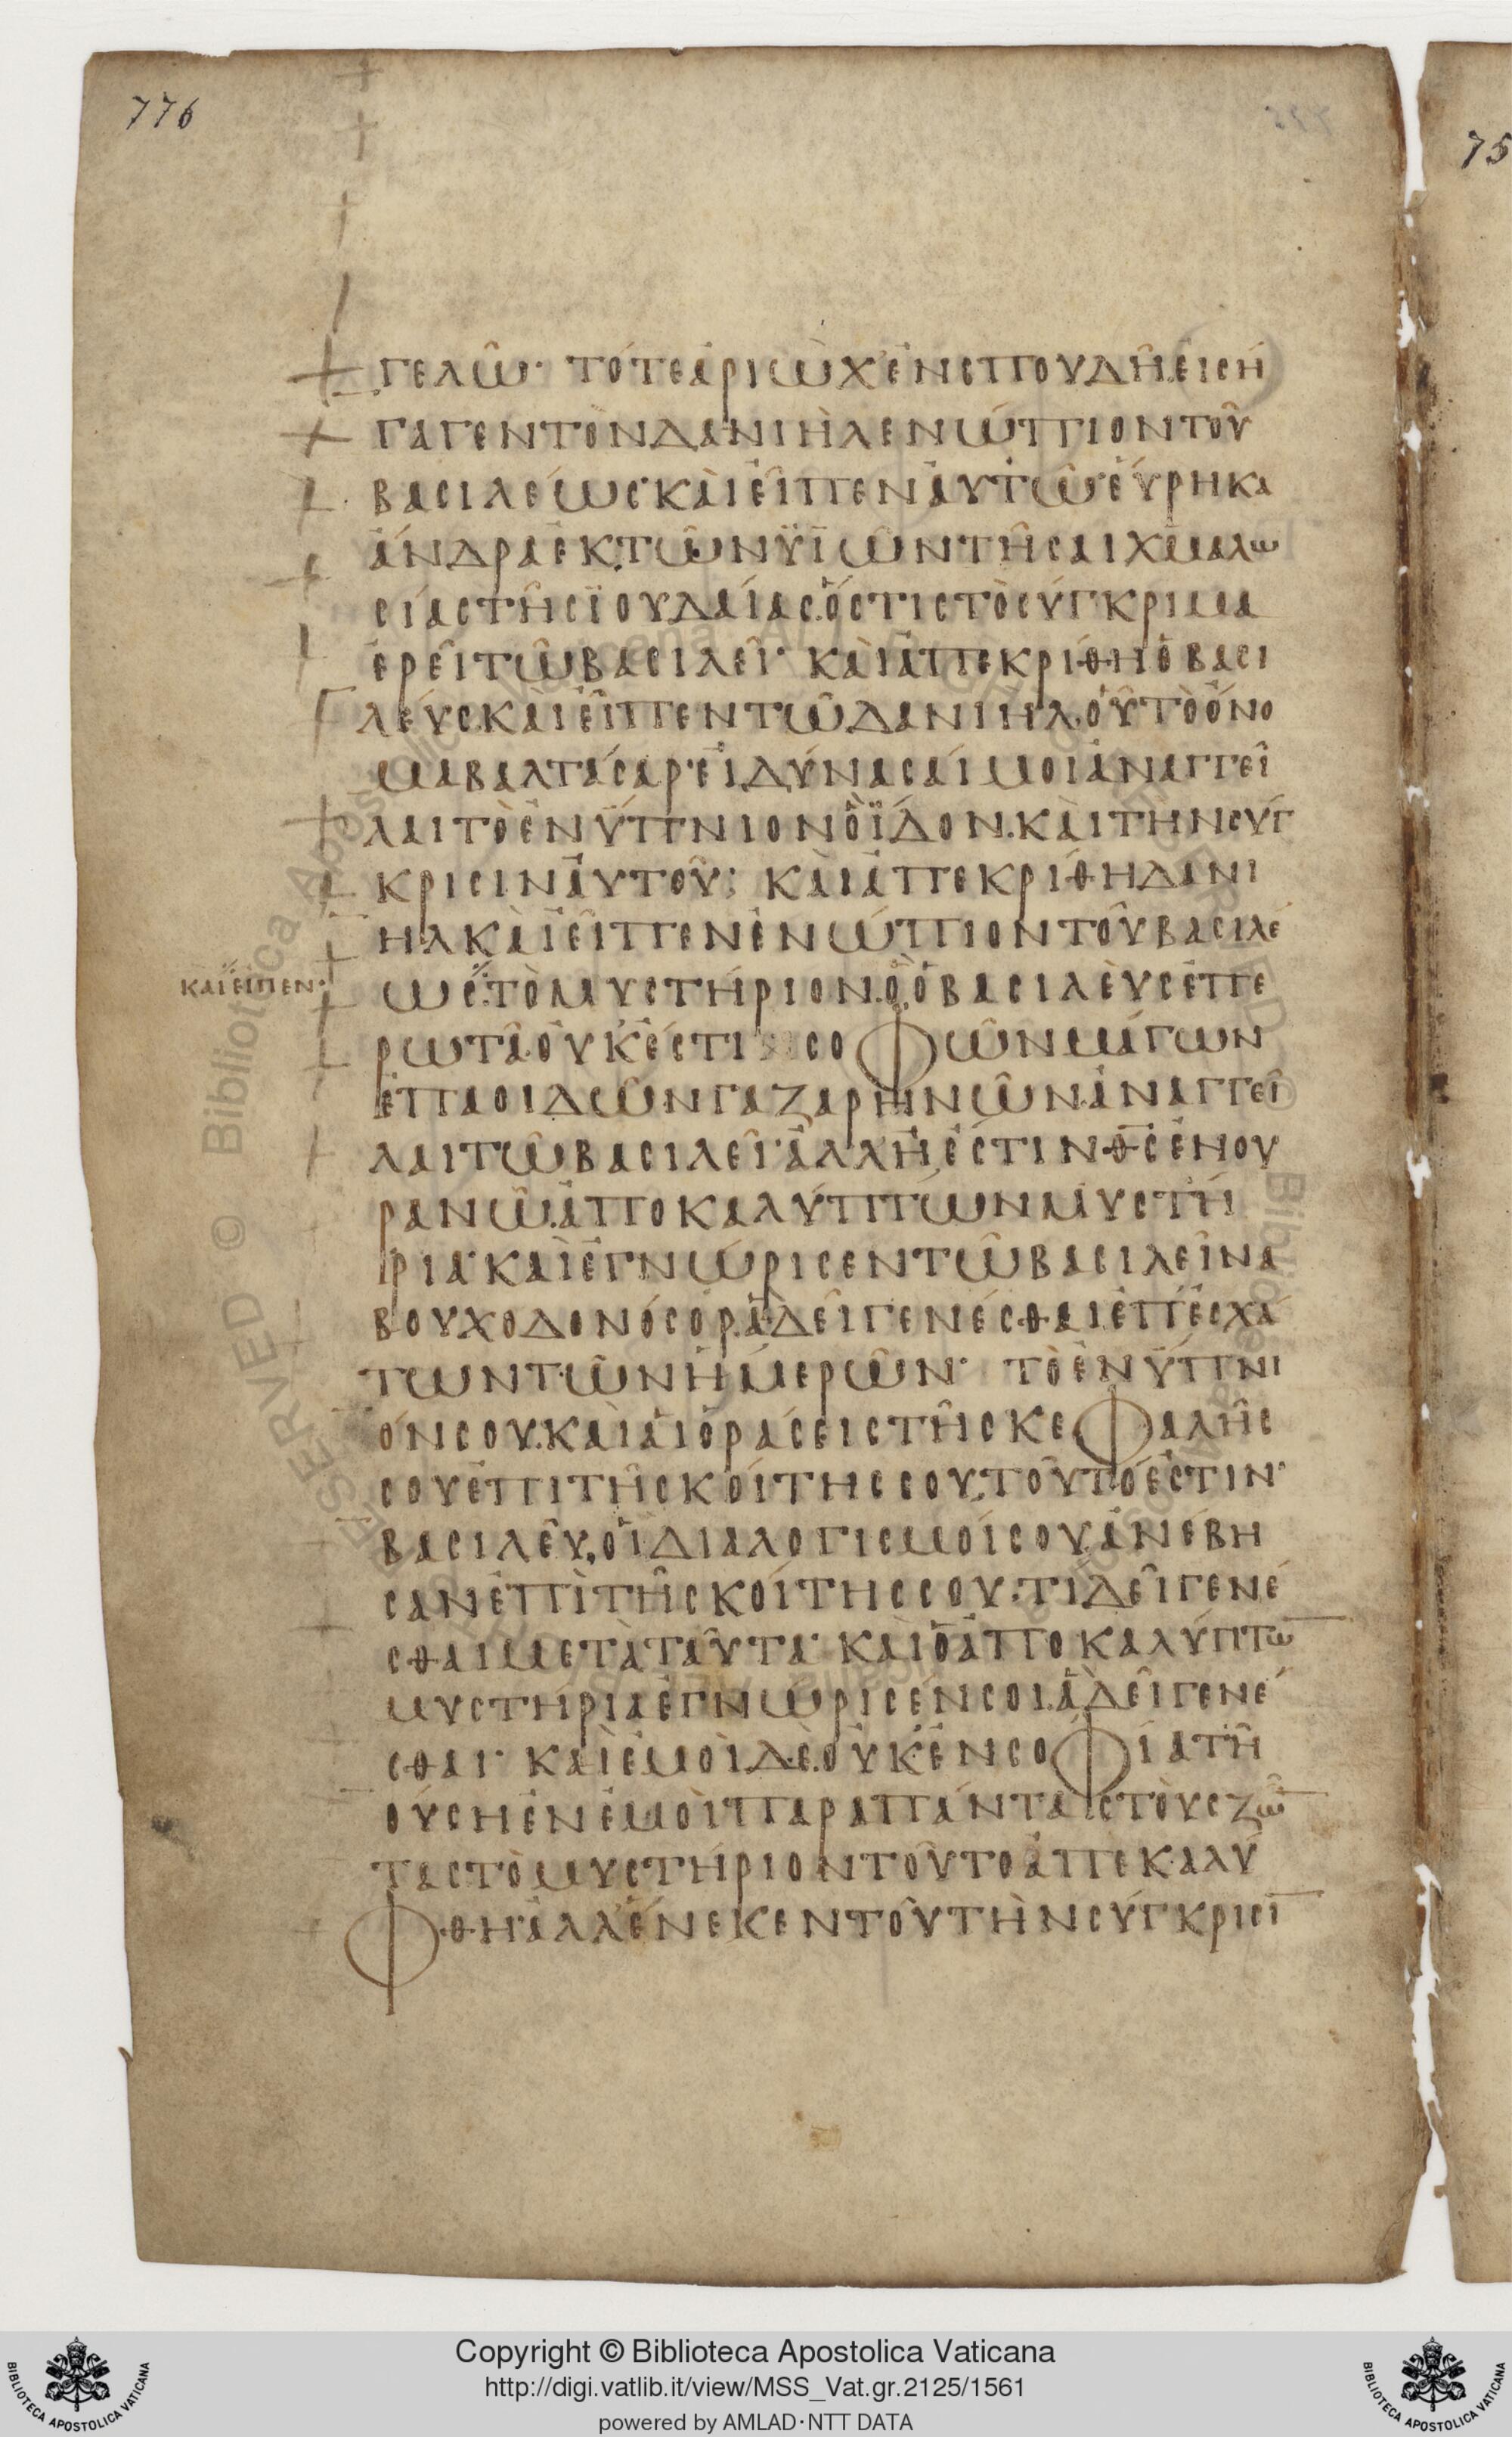 776
75
ΓΕΛῶ· ΤΌΤΕἈΡΙῺΧἘΝΣΠΟΥΔΗ͂ΕἸΣΉ
ΓΑΓΕΝΤῸΝΔΑΝΙῊΛΕΝΏΠΙΟΝΤΟΥ͂
ΒΑΣΙΛΈΩΣ·ΚΑῚΕἾΠΕΝἈΥΤΩ͂·ΕὝΡΗΚΑ
ἌΝΔΡΑἘΚΤΩ͂ΝΫΪΩ͂ΝΤΗ͂ΣΑΙΧΜΑΛΩ
ΣΊΑΣΤΗ͂ΣΪΟΥΔΑΊΑΣ.ὍΣΤΙΣΤῸΣΎΓΚΡΙΜΑ
ἘΡΕΙ͂ΤΩ͂ΒΑΣΙΛΕΙ͂· ΚΑῚἈΠΕΚΡΊΘΗὉΒΑΣΙ
ΛΕΎΣ.ΚΑῚΕἾΠΕΝΤΩ͂ΔΑΝΙΗΛ.ΟὟΤῸὌΝΟ
ΜΑΒΑΛΤΆΣΑΡ·ΕἸΔΎΝΑΣΑΊΜΟΙἈΝΑΓΓΕΙ͂
ΛΑΙΤῸἘΝΎΠΝΙΟΝὋΪ́ΔΟΝ.ΚΑῚΤΗΝΣΥΓ
ΚΡΙΣΙΝἈΥΤΟΥ͂; ΚΑῚἈΠΕΚΡΊΘΗΔΑΝΙ
ΗΛΚΑῚΕἾΠΕΝἘΝΏΠΙΟΝΤΟΥ͂ΒΑΣΙΛΈ
ΚΑΙΕΙΠΕΝ·
ΩΣ·ΤῸΜΥΣΤΉΡΙΟΝ.ὋὉΒΑΣΙΛΕῪΣἘΠΕ
ΡΩΤΑ͂.ΟΥ̓ΚἜΣΤΙ ΣΟΦΩ͂ΝΜΆΓΩΝ
ἘΠΑΟΙΔΩ͂ΝΓΑΖΑΡΗΝΩ͂Ν.ἈΝΑΓΓΕΙ͂
ΛΑΙΤΩ͂ΒΑΣΙΛΕΙ͂·ἈΛΛἨἜΣΤΙΝΘ̅Σ̅ἘΝΟΥ
ΡΑΝΩ͂.ἈΠΟΚΑΛΎΠΤΩΝΜΥΣΤΉ
ΡΙΑ·ΚΑῚἘΓΝΏΡΙΣΕΝΤΩ͂ΒΑΣΙΛΕΙ͂ΝΑ
ΒΟΥΧΟΔΟΝΌΣΟΡ.ἋΔΕΙ͂ΓΕΝΈΣΘΑΙἘΠἘΣΧΆ
ΤΩΝΤΩ͂ΝἩΜΕΡΩ͂Ν· ΤῸἘΝΎΠΝΙ
ΌΝΣΟΥ.ΚΑῚἉΙὉΡΆΣΕΙΣΤΗ͂ΣΚΕΦΑΛΗ͂Σ
ΣΟΥἘΠΙΤΗ͂ΣΚΟΊΤΗΣΣΟΥ,ΤΟΥ͂ΤΌἘΣΤΙΝ·
ΒΑΣΙΛΕΥ͂,ΟἹΔΙΑΛΟΓΙΣΜΟΊΣΟΥ.ἈΝΈΒΗ
ΣΑΝἘΠῚΤΗ͂ΣΚΟΊΤΗΣΣΟΥ.ΤΙΔΕΙ͂ΓΕΝΈ
ΣΘΑΙΜΕΤᾺΤΑΥ͂ΤΑ· ΚΑῚὉἈΠΟΚΑΛΎΠΤΩ̅
ΜΥΣΤΉΡΙΑἘΓΝΏΡΙΣΈΝΣΟΙ.ἋΔΕΙ͂ΓΕΝΈ
ΣΘΑΙ· ΚΑῚἘΜΟῚΔῈ.ΟΥ̓ΚἘΝΣΟΦΊΑΤΗ͂
ΟΎΣΗἘΝἘΜΟῚΠΑΡΑΠΆΝΤΑΣΤΟῪΣΖΩ̅
ΤΑΣΤῸΜΥΣΤΉΡΙΟΝΤΟΥ͂ΤΟἈΠΕΚΑΛΎ
ΦΘΗ·ἈΛΛἝΝΕΚΕΝΤΟΥ͂ΤῊΝΣΎΓΚΡΙΣῙ
Copyright © Biblioteca Apostolica Vaticana
http://digi.vatlib.it/view/MSS_Vat.gr.2125/1561
powered by AMLAD·NTT DATA
BIBLIOTECA APOSTOLICA VATICANA
BIBLIOTECA APOSTOLICA VATICANA